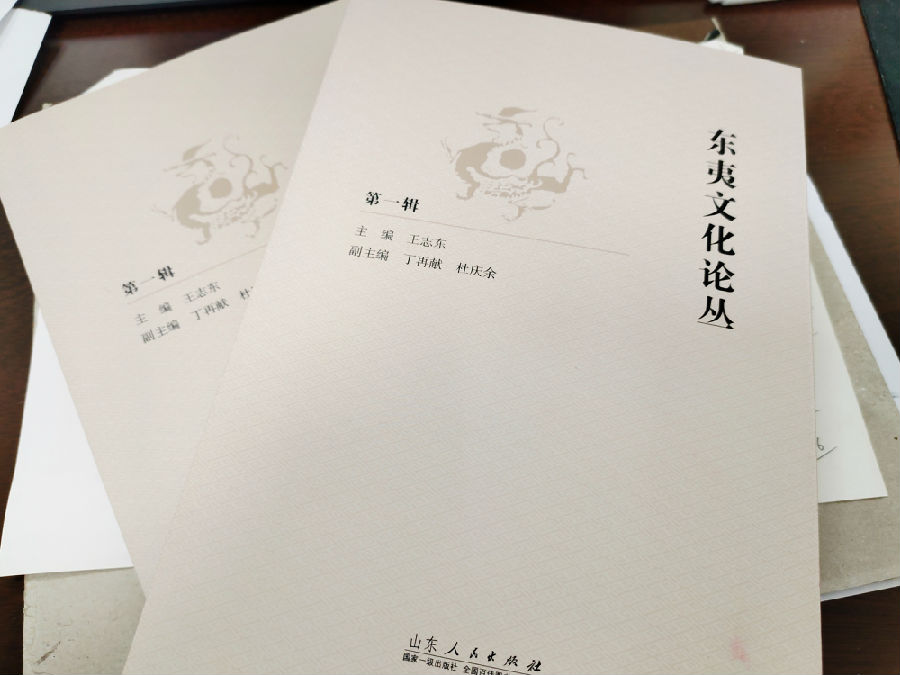 东夷文化论丛
第一辑
主 编 王志东
副主编 丁再献 杜庆余
山东人民出版社
国家一级出版社 全国百佳图
第一辑
主 编 王志东
副主编 丁再献 杜